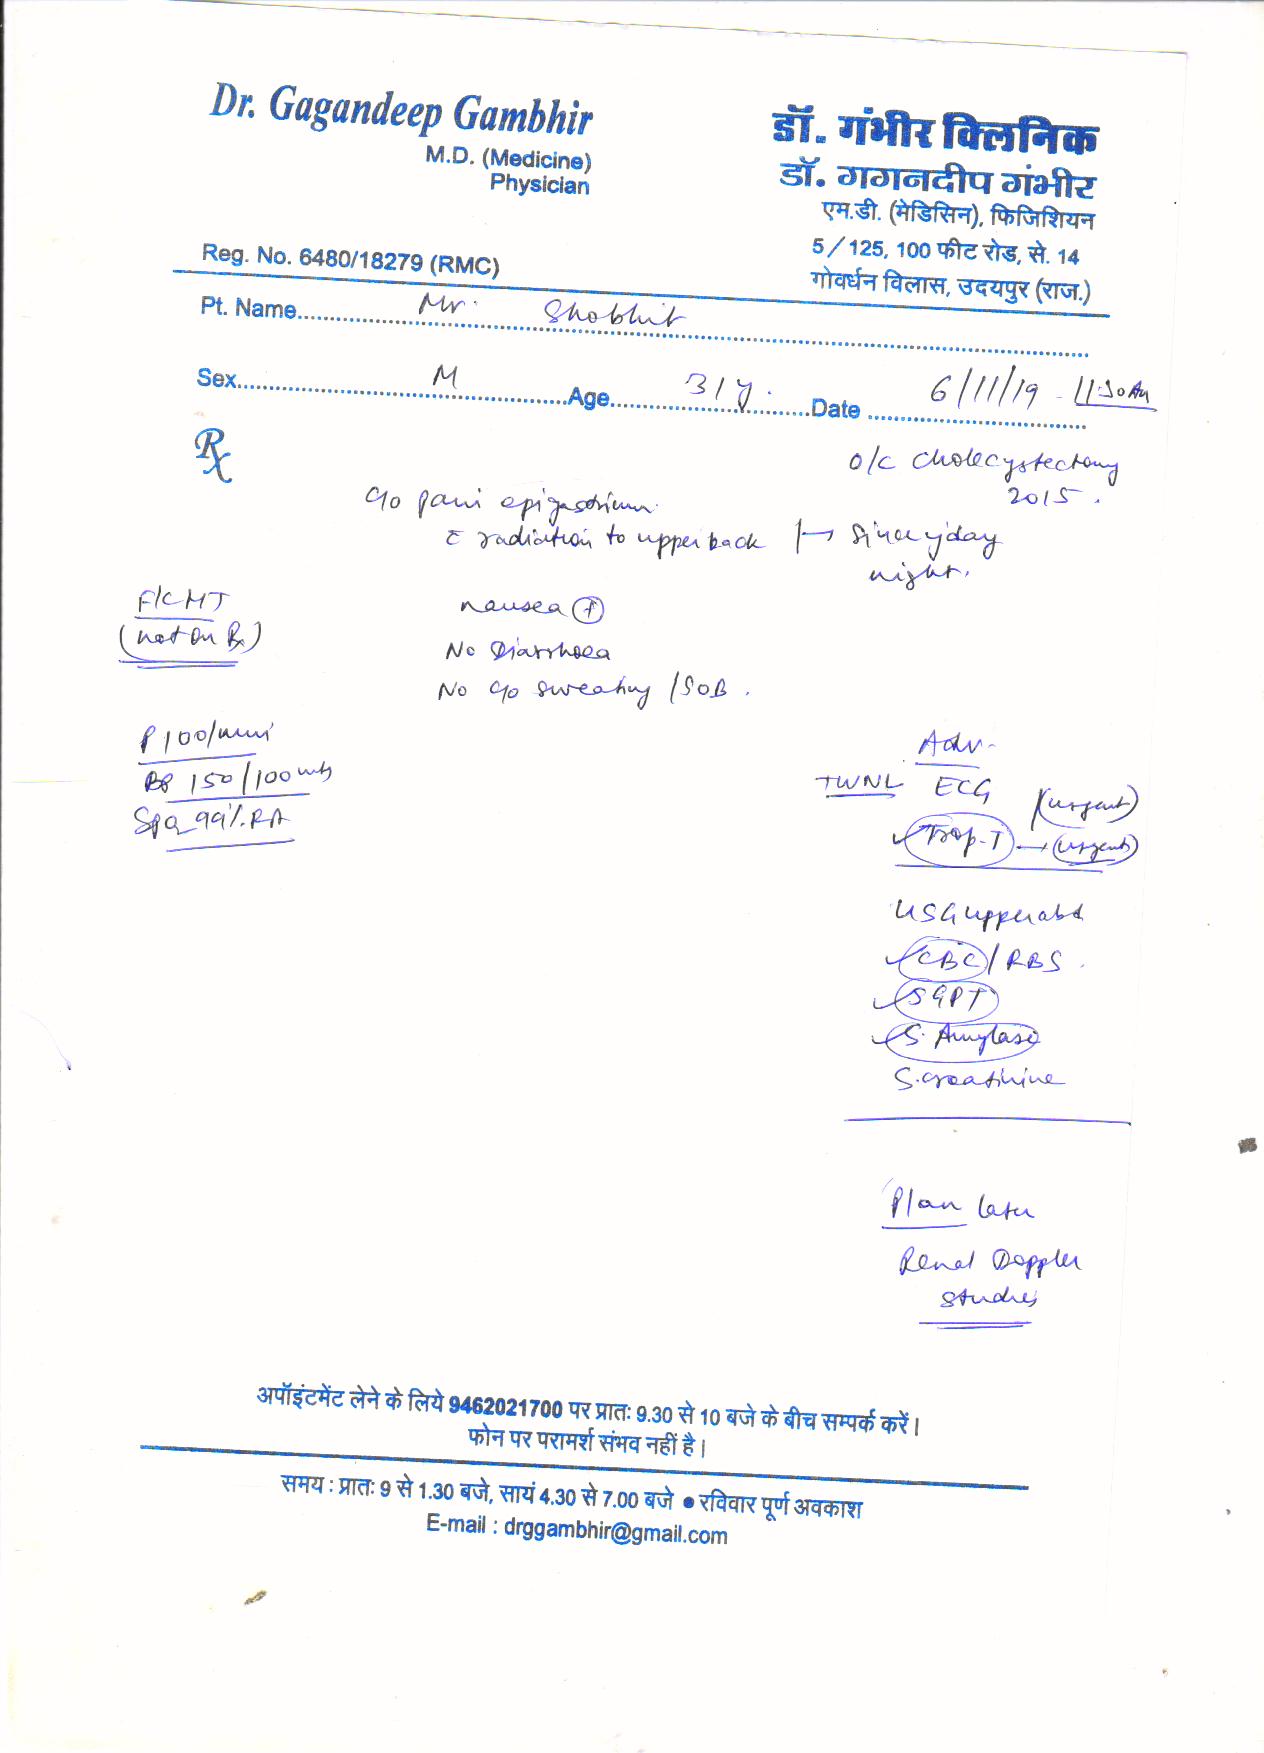 Dr. Gagandeep Gambhir
M.D. (Medicine)
Physician
Reg. No. 6480/18279 (RMC)
डॉ. गंभीर क्लिनिक
डॉ. गगनदीप गंभीर
एम.डी. (मेडिसिन), फिजिशियन
5/125, 100 फीट रोड, से. 14
गोवर्धन विलास, उदयपुर (राज.)
Pt. Name Mr. Shobhit
Sex M Age 31 y. Date 6/11/19 - 11:30 AM
Rx
O/C Cholecystectomy
2015.
C/o pain epigastrium
c radiation to upper back → Since y'day
night.
F/C HT
(not on Rx)
nausea (+)
No Diarrhoea
No c/o sweating / SOB.
P 100/min
BP 150/100
SpO2 99% RA
Adv-
TWNL ECG (urgent)
Trop-T → (urgent)
USG upper abd
CBC / RBS
SGPT
S. Amylase
S. creatinine
Plan later
Renal Doppler
studies
अपॉइंटमेंट लेने के लिये 9462021700 पर प्रातः 9.30 से 10 बजे के बीच सम्पर्क करें।
फोन पर परामर्श संभव नहीं है।
समय : प्रातः 9 से 1.30 बजे, सायं 4.30 से 7.00 बजे ● रविवार पूर्ण अवकाश
E-mail : drggambhir@gmail.com